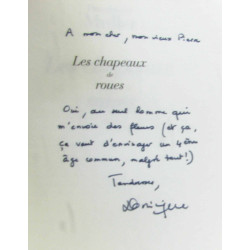 A mon cher, mon vieux Pierre
Les chapeaux
de
roues
Oui, au seul homme qui
m'envoie des fleurs (et ça,
ça vaut d'envisager un 4ème
âge commun, malgré tout!)
Tendresse,